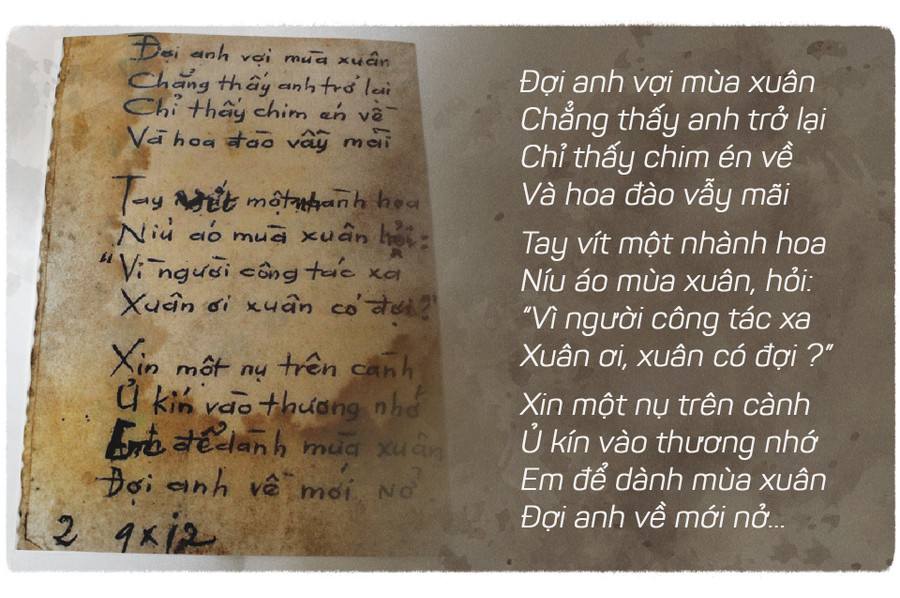 Đợi anh vợi mùa xuân
Chẳng thấy anh trở lại
Chỉ thấy chim én về
Và hoa đào vẫy mãi
Tay một nhành hoa
Níu áo mùa xuân hỏi:
"Vì người công tác xa
Xuân ơi xuân có đợi?
Xin một nụ trên cành
Ủ kín vào thương nhớ
Em để dành mùa xuân
Đợi anh về mới nở
2
Đợi anh vợi mùa xuân
Chẳng thấy anh trở lại
Chỉ thấy chim én về
Và hoa đào vẫy mãi
Tay vít một nhành hoa
Níu áo mùa xuân, hỏi:
“Vì người công tác xa
Xuân ơi, xuân có đợi ?”
Xin một nụ trên cành
Ủ kín vào thương nhớ
Em để dành mùa xuân
Đợi anh về mới nở...